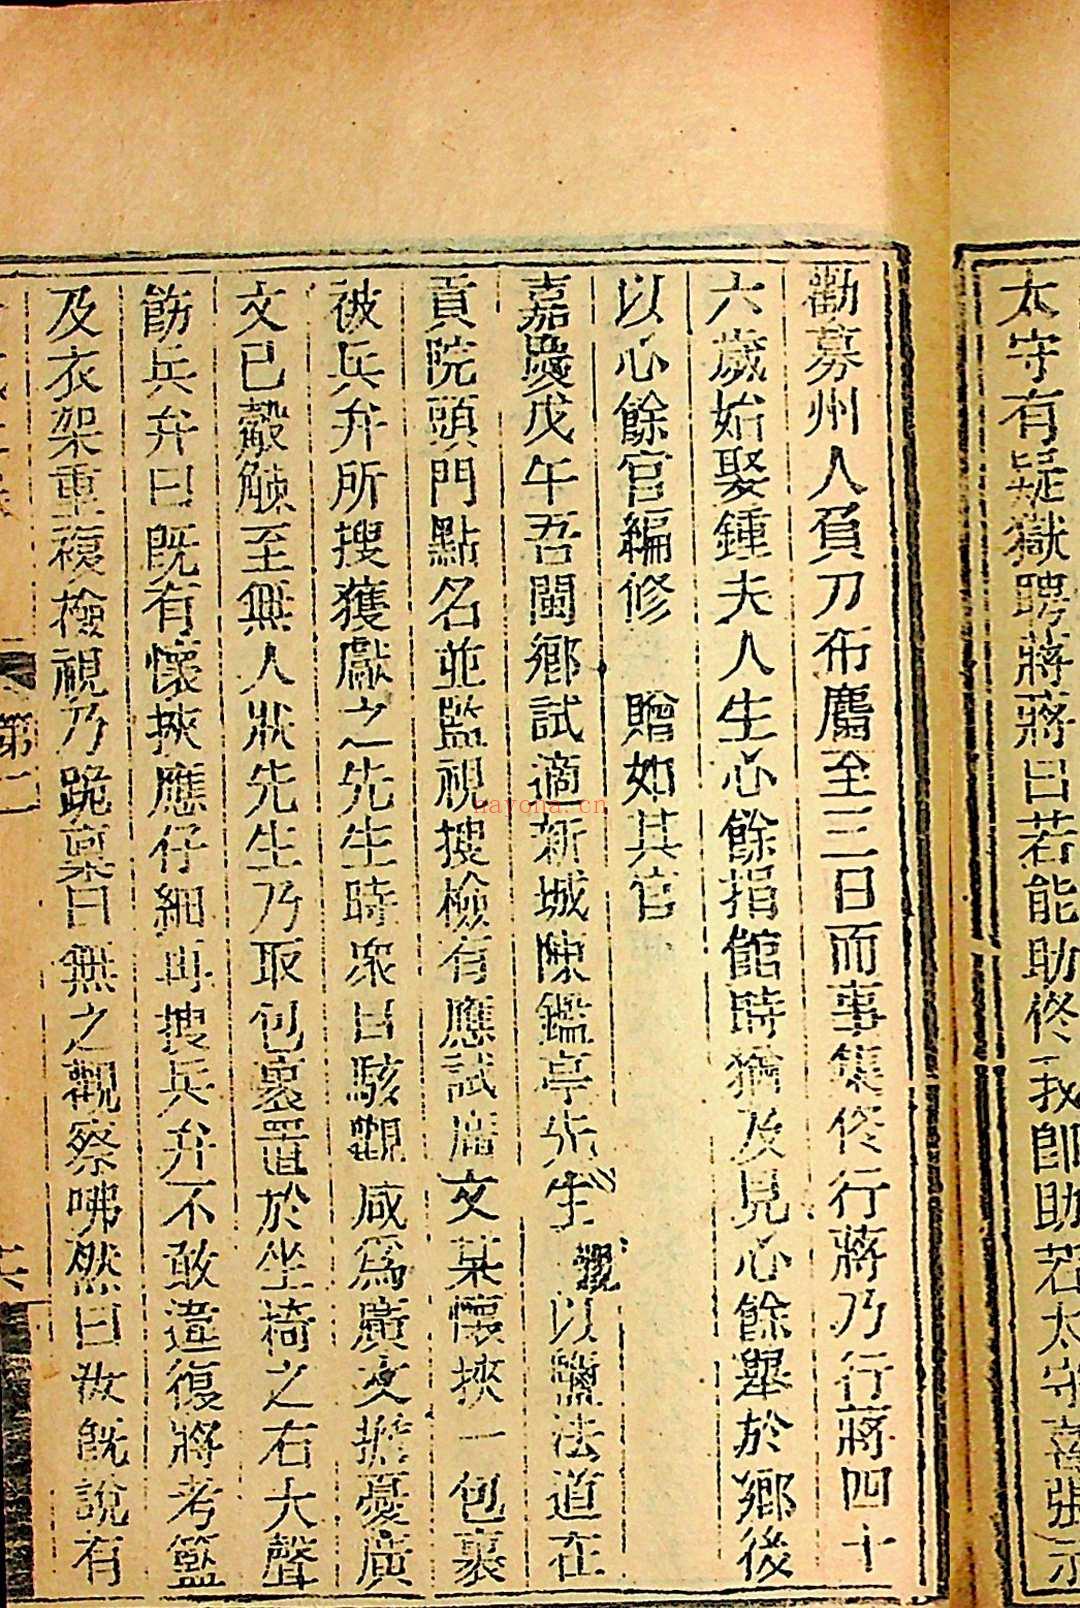 太守有疑獄聘蔣蔣曰若能助佟我即助若太守喜張示
勸募州人負刀布麕至三日而事集佟行蔣乃行蔣四十
六歲始娶鍾夫人生心餘指館時猶及見心餘舉於鄉後
以心餘官編修 贈如其官
嘉慶戊午吾閩鄉試適新城陳鑑亭先生觀以鹽法道在
貢院頭門點名並監視搜檢有應試廣文某懷挾一包裹
被兵弁所搜獲獻之先生時眾目駭觀咸為廣文擔憂廣
文已觳觫至無人狀先生乃取包裹置於坐椅之右大聲
飭兵弁曰既有懷挾應仔細再搜兵弁不敢違復將考籃
及衣架重複檢視乃跪稟曰無之觀察咈然曰汝既說有
第二
uayona.cn